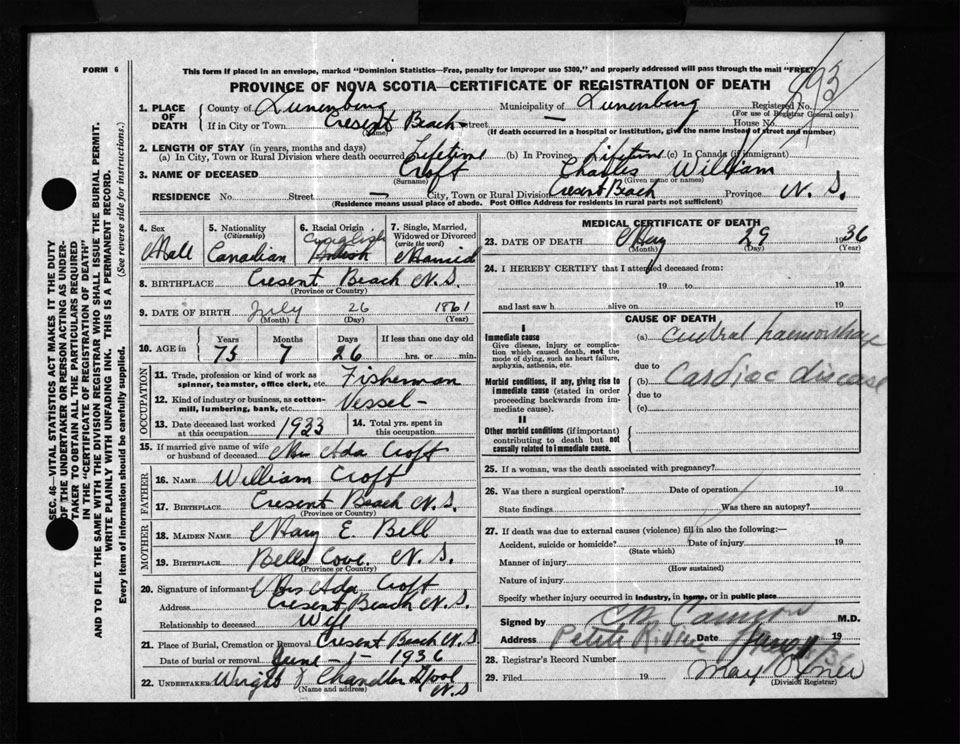 FORM 6
This form if placed in an envelope, marked "Dominion Statistics—Free, penalty for improper use $300," and properly addressed will pass through the mail "FREE"
PROVINCE OF NOVA SCOTIA—CERTIFICATE OF REGISTRATION OF DEATH
SEC. 46—VITAL STATISTICS ACT MAKES IT THE DUTY
OF THE UNDERTAKER OR PERSON ACTING AS UNDER-
TAKER TO OBTAIN ALL THE PARTICULARS REQUIRED
IN THE "CERTIFICATE OF REGISTRATION OF DEATH"
AND TO FILE THE SAME WITH THE DIVISION REGISTRAR WHO SHALL ISSUE THE BURIAL PERMIT.
WRITE PLAINLY WITH UNFADING INK. THIS IS A PERMANENT RECORD.
Every item of information should be carefully supplied. (See reverse side for instructions.)
1. PLACE OF DEATH
County of Lunenburg Municipality of Lunenburg Registered No.
(For use of Registrar General only)
If in City or Town Cresent Beach street — House No.
(Name) (If death occurred in a hospital or institution, give the name instead of street and number)
2. LENGTH OF STAY (in years, months and days)
(a) In City, Town or Rural Division where death occurred Lifetime (b) In Province Lifetime (c) In Canada (if immigrant)
3. NAME OF DECEASED Croft Charles William
(Surname) (Given name or names)
RESIDENCE No. Street — City, Town or Rural Division Cresent Beach Province N. S.
(Residence means usual place of abode. Post Office Address for residents in rural parts not sufficient)
4. Sex Male
5. Nationality (Citizenship) Canadian
6. Racial Origin English
7. Single, Married, Widowed or Divorced (write the word) Married
8. BIRTHPLACE Cresent Beach N.S.
(Province or Country)
9. DATE OF BIRTH July 26 1861
(Month) (Day) (Year)
10. AGE in Years Months Days If less than one day old
75 7 26 hrs. or min.
OCCUPATION
11. Trade, profession or kind of work as spinner, teamster, office clerk, etc. Fisherman
12. Kind of industry or business, as cotton-mill, lumbering, bank, etc. Vessel —
13. Date deceased last worked at this occupation 1933
14. Total yrs. spent in this occupation
15. If married give name of wife or husband of deceased Mrs Ada Croft
FATHER
16. NAME William Croft
17. BIRTHPLACE Cresent Beach N.S.
(Province or Country)
MOTHER
18. MAIDEN NAME Mary E. Bell
19. BIRTHPLACE Bells Cove. N. S.
(Province or Country)
20. Signature of informant Mrs Ada Croft
Address Cresent Beach N.S.
Relationship to deceased Wife
21. Place of Burial, Cremation or Removal Cresent Beach N.S.
Date of burial or removal June - 1 - 1936
22. UNDERTAKER Chandler N.S
(Name and address)
MEDICAL CERTIFICATE OF DEATH
23. DATE OF DEATH May 29 1936
(Month) (Day) (Year)
24. I HEREBY CERTIFY that I attended deceased from:
19 to 19
and last saw h alive on 19
CAUSE OF DEATH
I
Immediate cause
Give disease, injury or complication which caused death, not the mode of dying, such as heart failure, asphyxia, asthenia, etc.
(a) haemorrhage
due to
Morbid conditions, if any, giving rise to immediate cause (stated in order proceeding backwards from immediate cause).
(b) Cardiac disease
due to
(c)
II
Other morbid conditions (if important) contributing to death but not causally related to immediate cause.
25. If a woman, was the death associated with pregnancy?
26. Was there a surgical operation? Date of operation 19
State findings Was there an autopsy?
27. If death was due to external causes (violence) fill in also the following:—
Accident, suicide or homicide? Date of injury 19
(State which)
Manner of injury
(How sustained)
Nature of injury
Specify whether injury occurred in industry, in home, or in public place
Signed by M.D.
Address Petite Riviere Date 19
28. Registrar's Record Number
29. Filed 19 May Oxner
(Division Registrar)